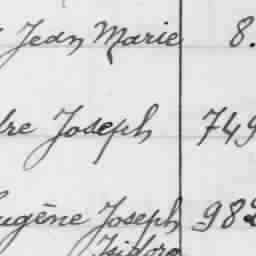 Jean Marie 8.
dre Joseph 749
Eugène Joseph 982
Isidore